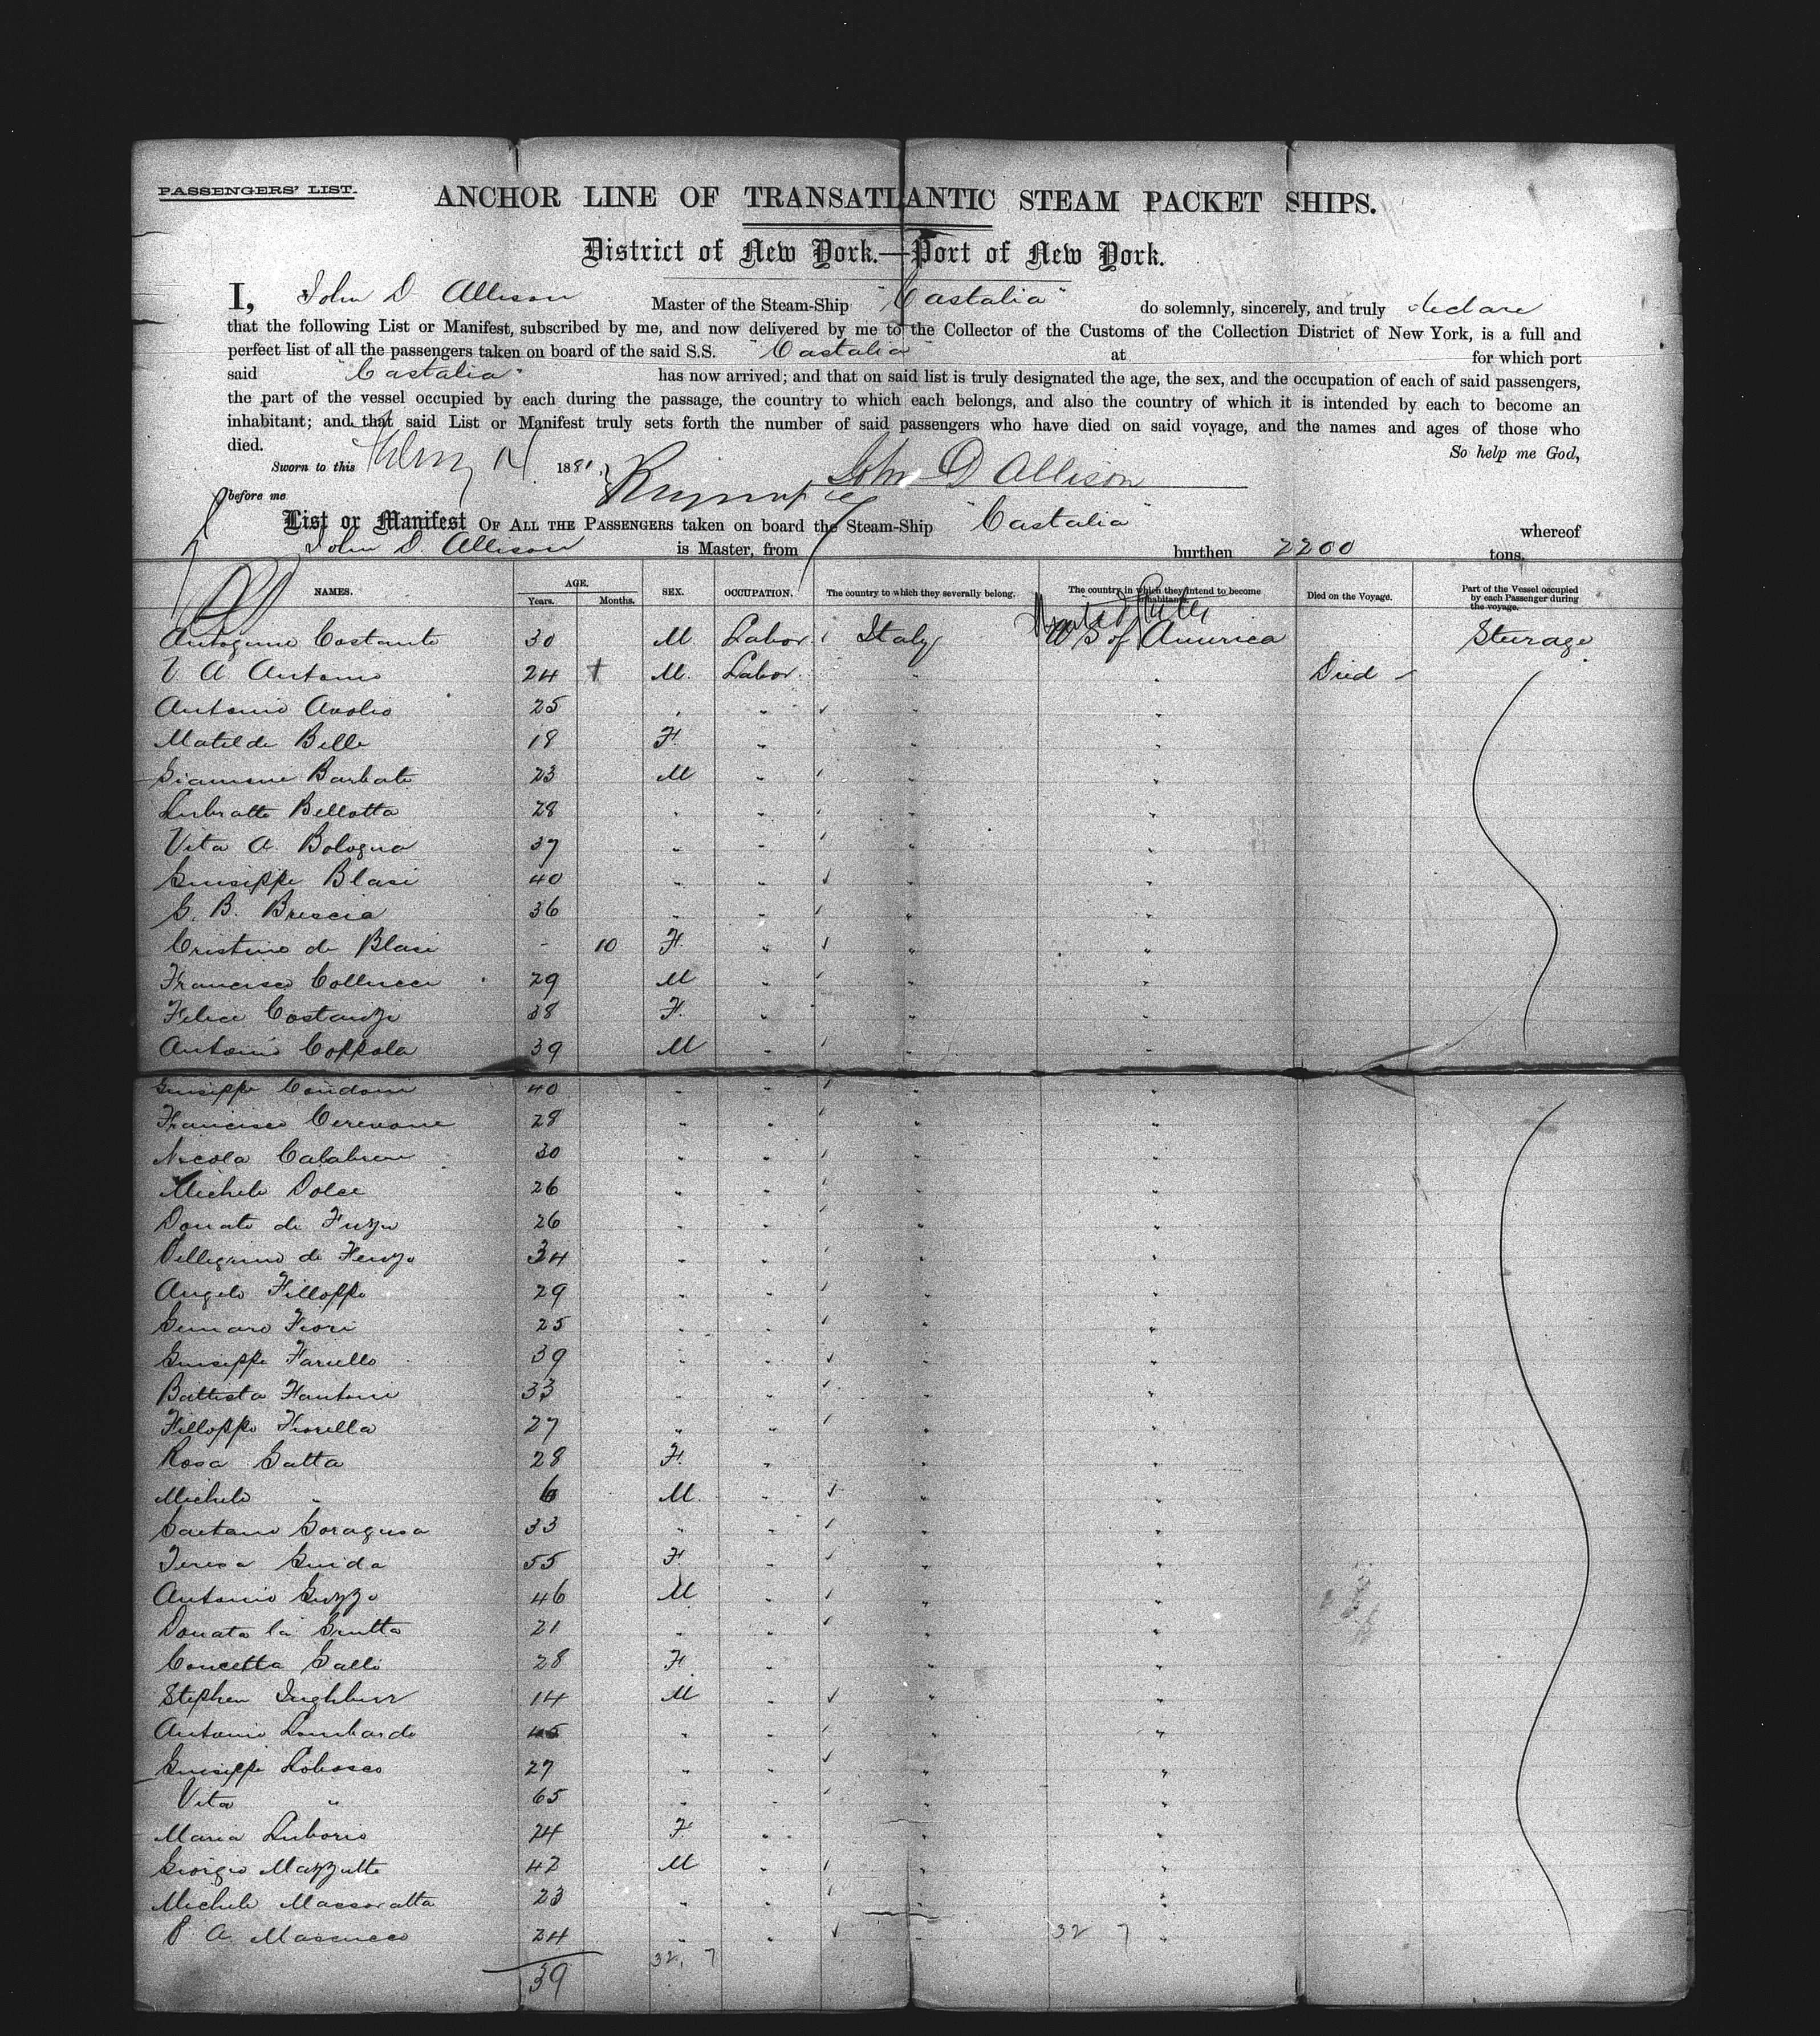 PASSENGERS' LIST.
ANCHOR LINE OF TRANSATLANTIC STEAM PACKET SHIPS.
District of New York.—Port of New York.
I, John D. Allison Master of the Steam-Ship "Castalia" do solemnly, sincerely, and truly declare
that the following List or Manifest, subscribed by me, and now delivered by me to the Collector of the Customs of the Collection District of New York, is a full and
perfect list of all the passengers taken on board of the said S.S. "Castalia" at for which port
said "Castalia" has now arrived; and that on said list is truly designated the age, the sex, and the occupation of each of said passengers,
the part of the vessel occupied by each during the passage, the country to which each belongs, and also the country of which it is intended by each to become an
inhabitant; and that said List or Manifest truly sets forth the number of said passengers who have died on said voyage, and the names and ages of those who
died. So help me God,
Sworn to this 14 1881, John D Allison
before me
List or Manifest OF ALL THE PASSENGERS taken on board the Steam-Ship "Castalia" whereof
John D. Allison is Master, from burthen 2200 tons.
NAMES. AGE. Years. Months. SEX. OCCUPATION. The country to which they severally belong. The country in which they intend to become inhabitants. Died on the Voyage. Part of the Vessel occupied by each Passenger during the voyage.
United States
Costanto 30 M Labor Italy U S of America Steerage
V A Antonio 24 M. Labor " " Died
Antonio Avolio 25 " " " "
Matilde Belle 18 F. " " "
Barbato 23 M " " "
Bellotta 28 " " " "
Vita A. Bologna 37 " " " "
Guiseppe Blasi 40 " " " "
G. B. Brescia 36 " " " "
Cristino de Blasi - 10 F. " " "
Francisco Collucci 29 M " " "
Felice Costanzo 38 F. " " "
Antonio Coppola 39 M " " "
Guiseppe Condone 40 " " " "
Francisco Cerevone 28 " " " "
Nicola Calabrese 30 " " " "
Michele Dolce 26 " " " "
Donato de 26 " " " "
Pellegrino de 34 " " " "
Angelo Filloppo 29 " " " "
Gennaro Fiori 25 " " " "
Guiseppe Fariello 39 " " " "
Battista Fantoni 33 " " " "
Filloppo Fiorella 27 " " " "
Rosa Gatta 28 F. " " "
Michele " 6 M. " " "
Gaetano Goragusa 33 " " " "
Teresa Guida 55 F. " " "
Antonio Guzzo 46 M " " "
Donato la Grutta 21 " " " "
Concetta Galli 28 F. " " "
Stephen 14 M " " "
Antonio Lombardo 45 " " " "
Guiseppe Lobosco 27 " " " "
Vita " 65 " " " "
Maria Luborio 24 F. " " "
Giorgio Mazzutto 42 M " " "
Michele Massoratta 23 " " " "
P. A. Masucco 24 " " " "
32 7
39 32, 7